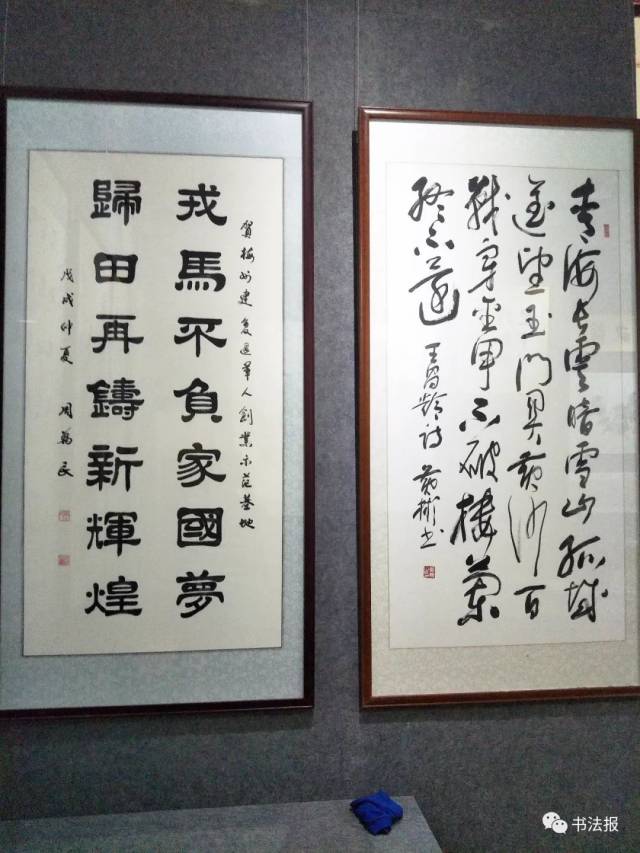 賀梅州建復退軍人創業示范基地
戎馬不負家國夢
歸田再鑄新輝煌
戊戌仲夏 周萬民
青海長雲暗雪山孤城
遥望玉門関黄沙百
戰穿金甲不破樓蘭
終不還 王昌齡詩 彬书
书法报